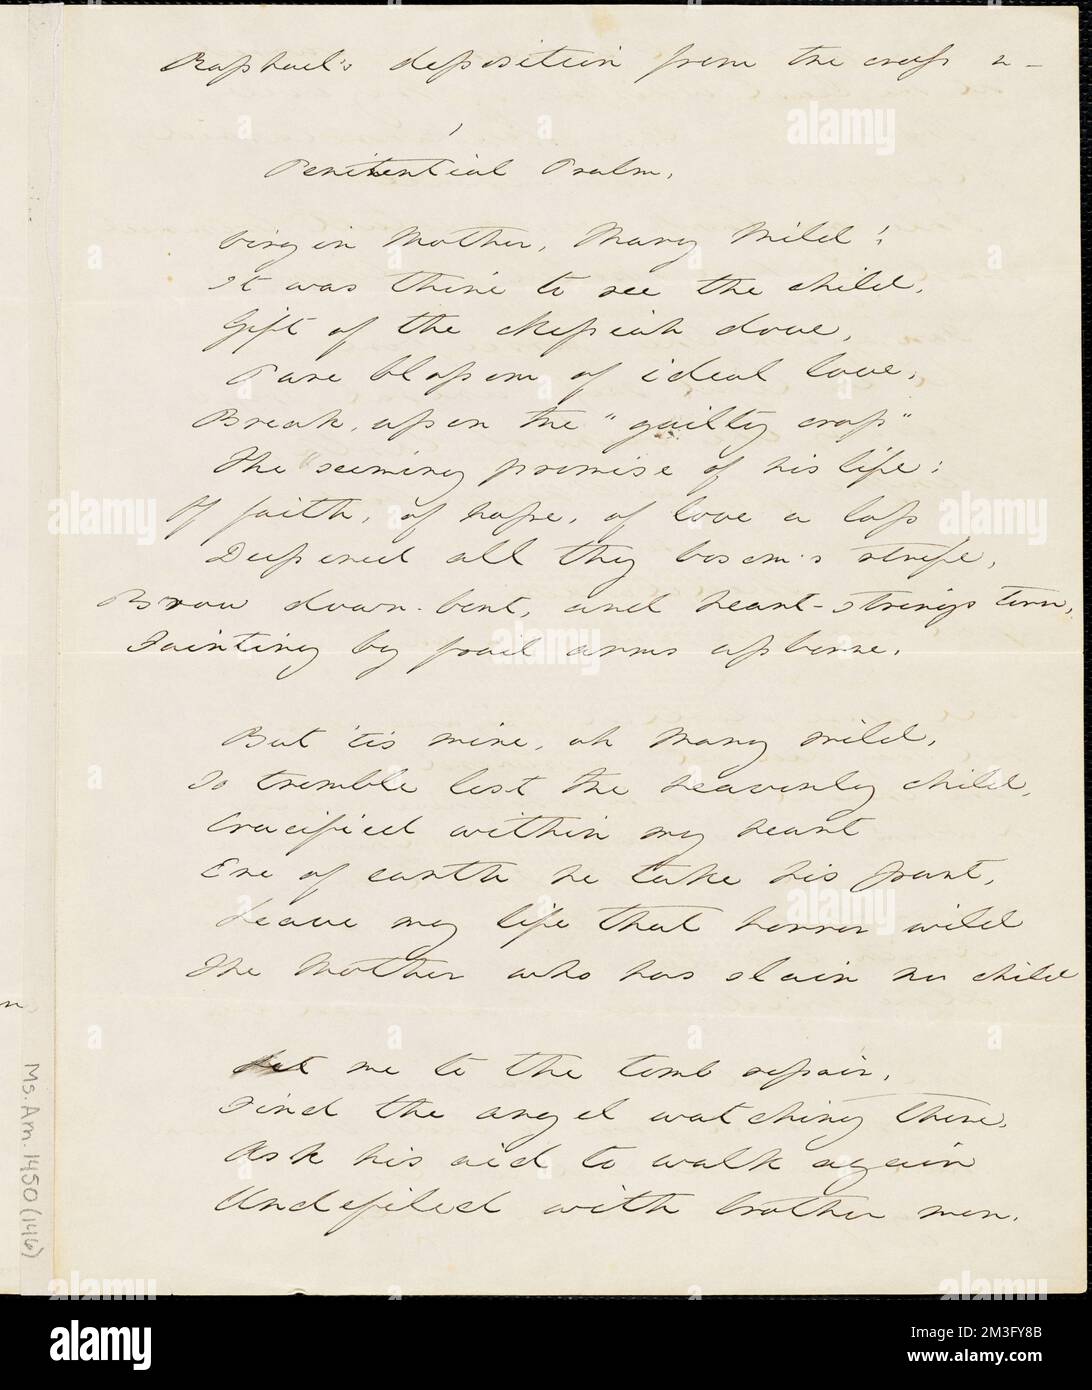 Raphael's deposition from the cross &
Penitential Psalm.
Virgin Mother, Mary Mild!
It was thine to see the child,
Gift of the Messiah dove,
Pure blossom of ideal love,
Break, upon the "guilty cross"
The seeming promise of his life:
Of faith, of hope, of love a loss
Deepened all thy bosom's strife,
Brow down-bent, and heart-strings torn,
Fainting by frail arms upborne.
But 'tis mine, oh Mary mild,
To tremble lest the heavenly child,
Crucified within my heart
Ere of earth he take his part,
Leave my life that horror wild
The Mother who has slain her child
Let me to the tomb repair,
Find the angel watching there,
Ask his aid to walk again
Undefiled with brother men.
Ms. Am. 1450 (146)
alamy
Image ID: 2M3FY8B
www.alamy.com